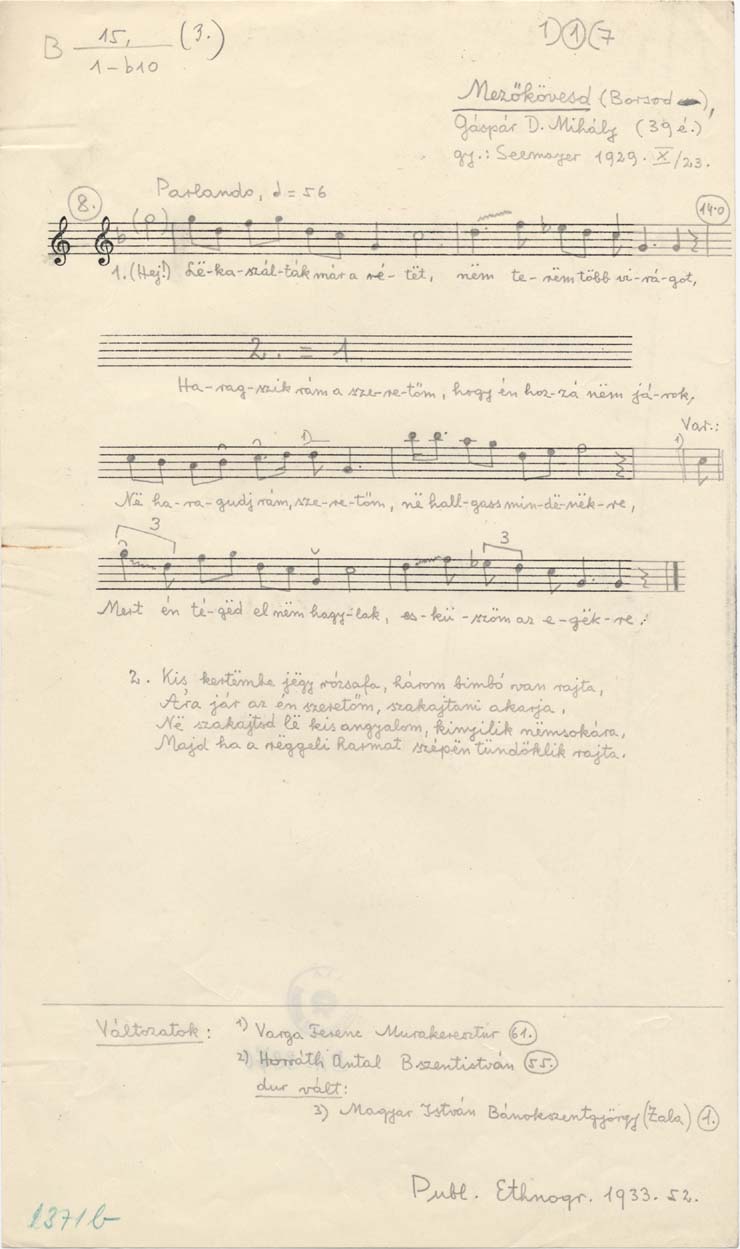 B 15, / 1-b10 (3.)
1) 1 (7
Mezőkövesd (Borsod),
Gáspár D. Mihály (39 é.)
gy.: Seemayer 1929. X/23.
8.
Parlando, = 56
140
1. (Hej!) Lë-ka-szál-ták már a ré-tët, nëm te-rëm több vi-rá-got,
2. = 1
Ha-rag-szik rám a sze-re-tőm, hogy én hoz-zá nëm já-rok,
Var.:
1)
1)
Në ha-ra-gudj rám, sze-re-tőm, në hall-gass min-dë-nëk-re,
3
3
Mert én té-gëd el nëm hagy-lak, es-kü-szöm az e-gëk-re.
2. Kis kertëmbe jëgy rózsafa, három bimbó van rajta,
Ára jár az én szeretőm, szakajtani akarja,
Në szakajtsd lë kis angyalom, kinyilik nëmsokára,
Majd ha a rëggeli harmat szépën tündöklik rajta.
Változatok: 1) Varga Ferenc Murakeresztúr 61.
2) Horváth Antal Bszentistván 55.
dur vált:
3) Magyar István Bánokszentgyörgy (Zala) 1.
Publ. Ethnogr. 1933. 52.
1371b